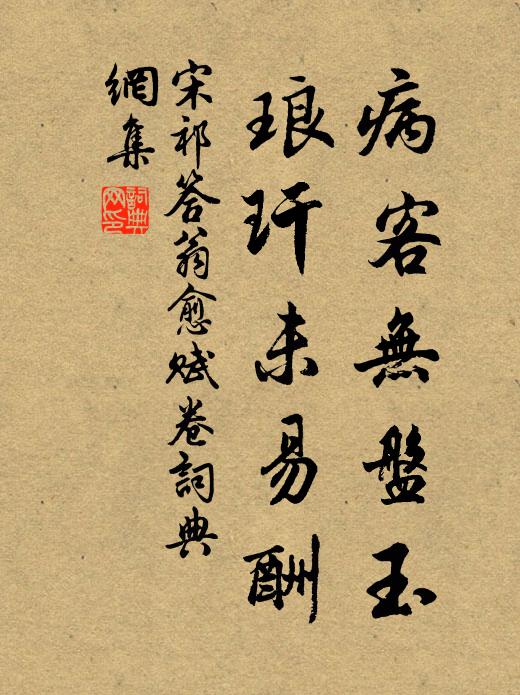 病客無盤玉
琅玕未易酬
宋祁答翁愈賦卷詞典
網集
詞典
网印